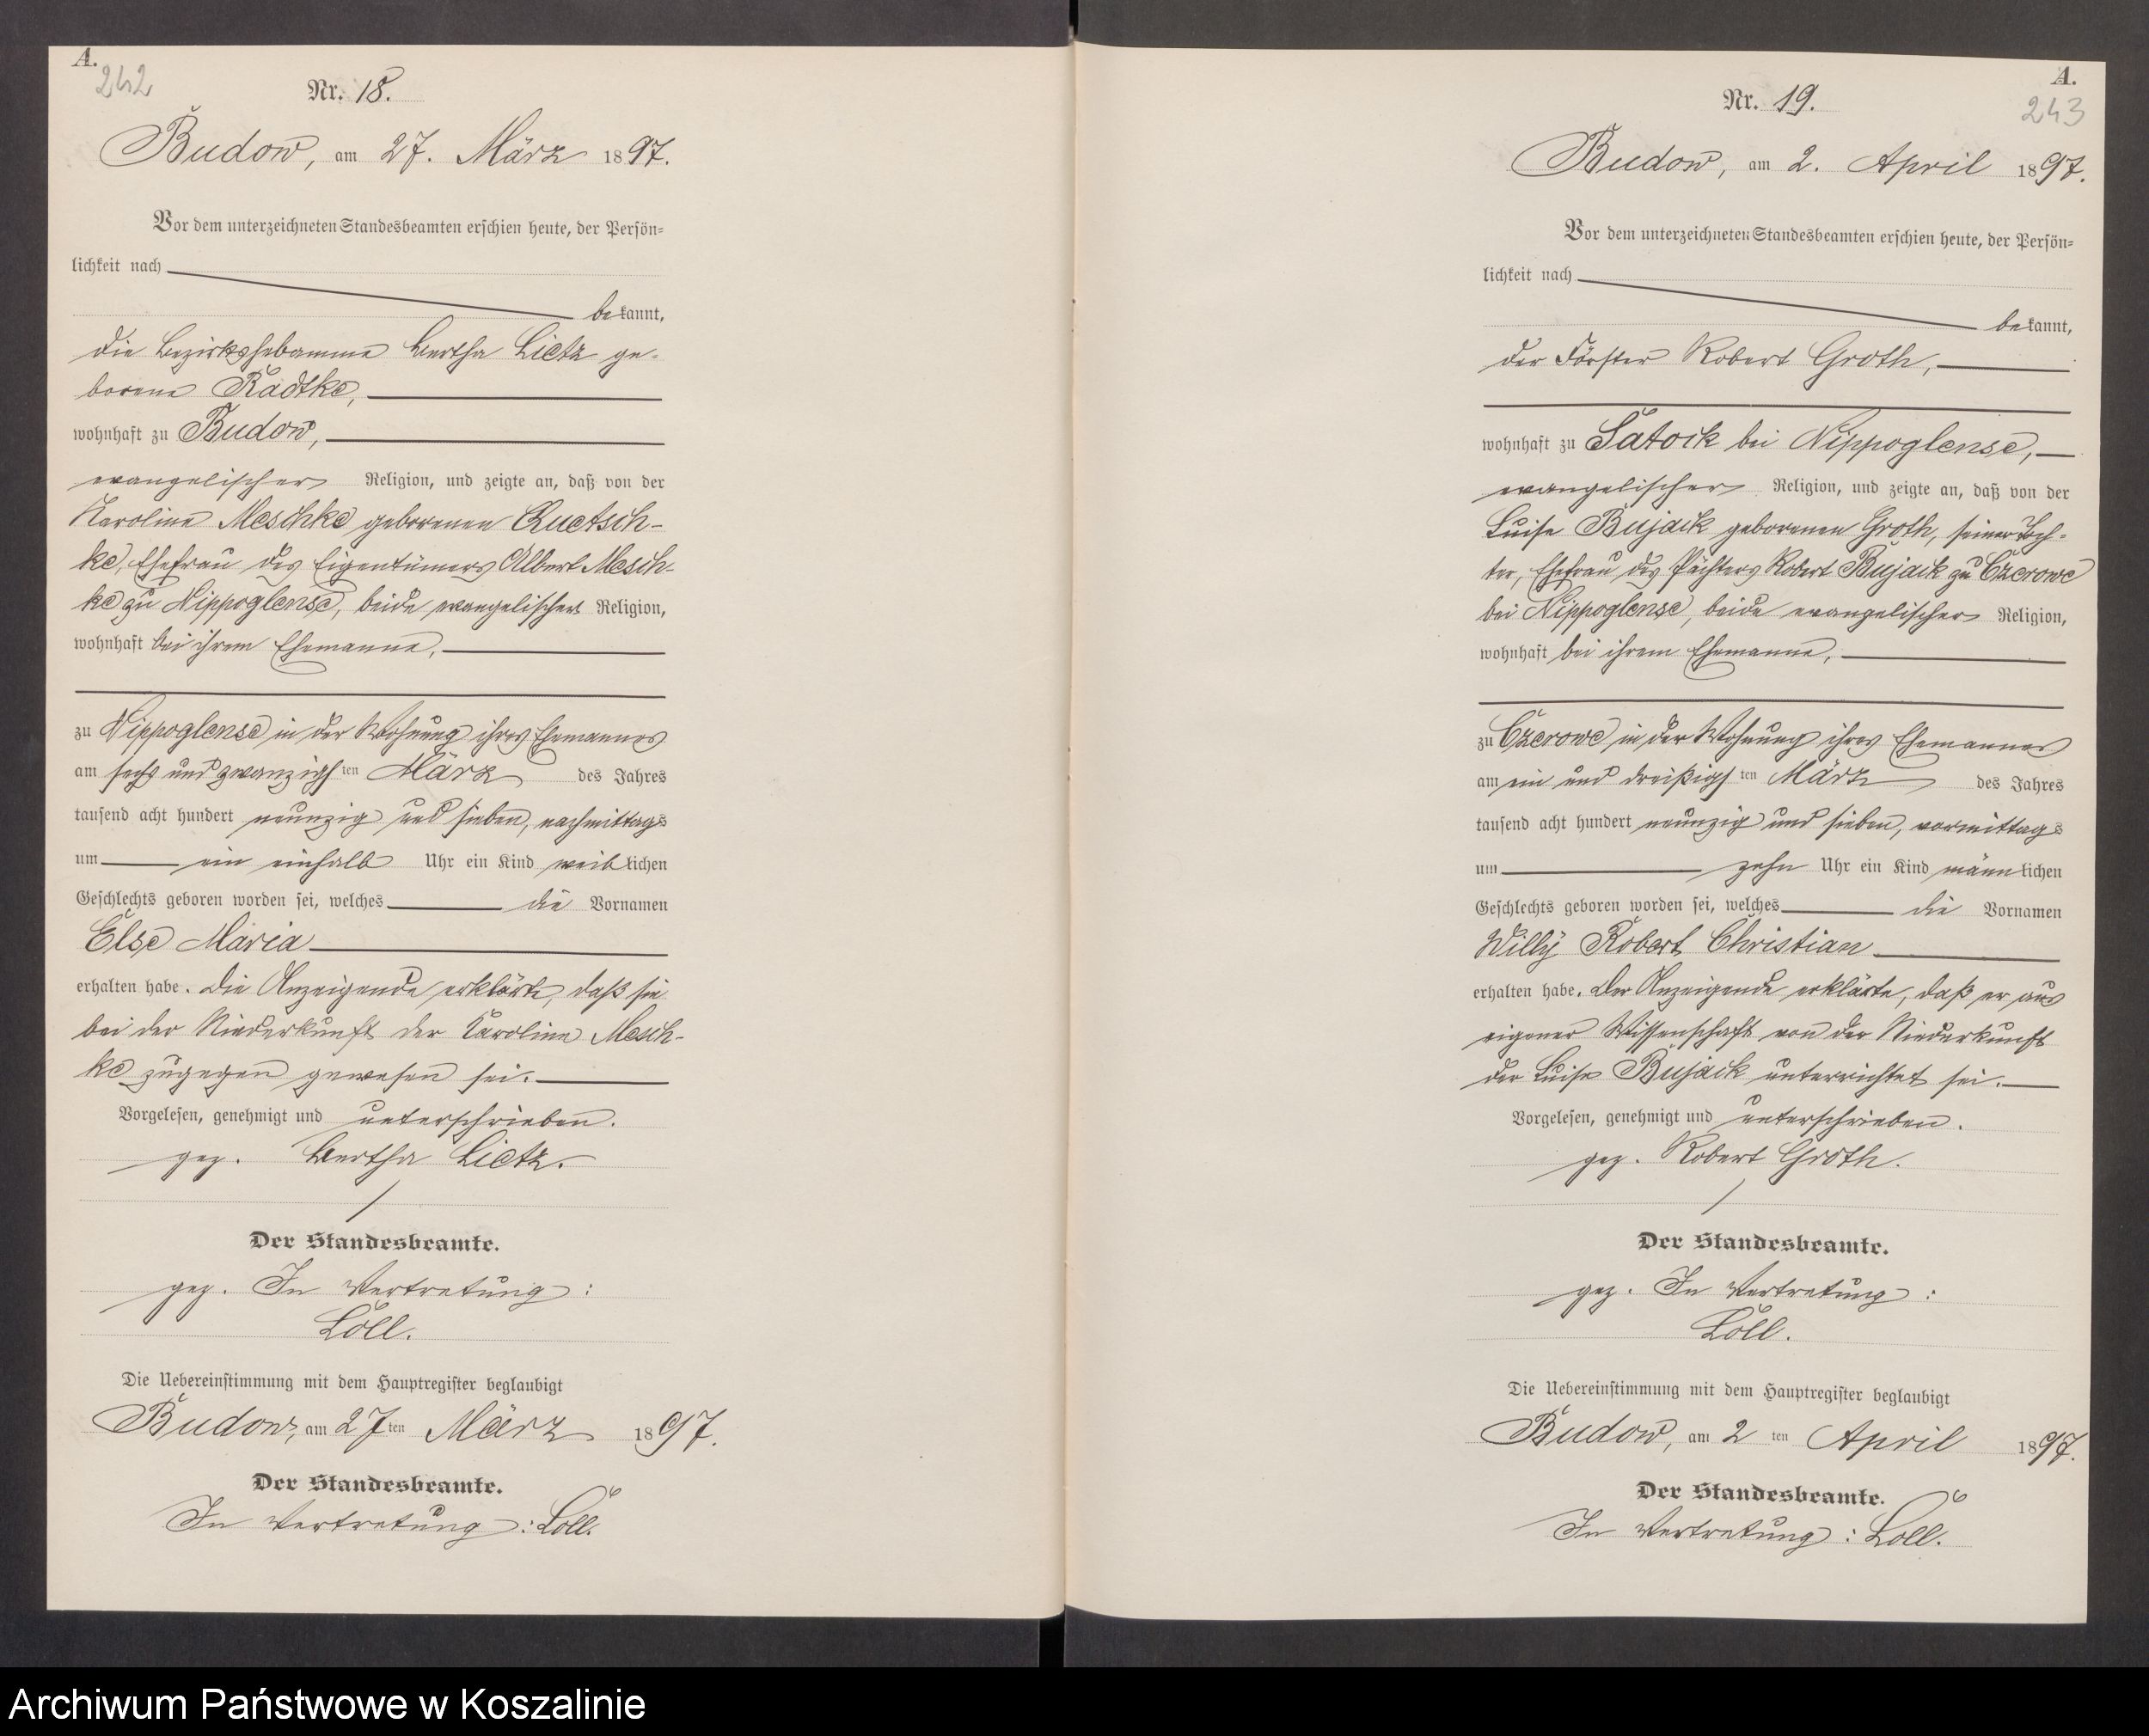 A.
242
Nr. 18.
Budow, am 27. März 1897.
Vor dem unterzeichneten Standesbeamten erschien heute, der Persön=
lichkeit nach
bekannt,
die Bezirkshebamme Bertha Lietz ge-
borene Radtke,
wohnhaft zu Budow,
evangelischer Religion, und zeigte an, daß von der
Karoline Meschke geborenen Quetsch-
ke, Ehefrau des Eigentümers Albert Mesch-
ke zu Nippoglense, beide evangelischer Religion,
wohnhaft bei ihrem Ehemanne,
zu Nippoglense in der Wohnung ihres Ehemannes
am sechs und zwanzigsten März des Jahres
tausend acht hundert neunzig und sieben, nachmittags
um ein einhalb Uhr ein Kind weiblichen
Geschlechts geboren worden sei, welches die Vornamen
Else Maria
erhalten habe. Die Anzeigende erklärte, daß sie
bei der Niederkunft der Karoline Mesch-
ke zugegen gewesen sei.
Vorgelesen, genehmigt und unterschrieben.
gez. Bertha Lietz.
Der Standesbeamte.
gez. In Vertretung:
Löll.
Die Uebereinstimmung mit dem Hauptregister beglaubigt
Budow, am 27ten März 1897.
Der Standesbeamte.
In Vertretung: Löll.
A.
243
Nr. 19.
Budow, am 2. April 1897.
Vor dem unterzeichneten Standesbeamten erschien heute, der Persön=
lichkeit nach
bekannt,
der Förster Robert Groth,
wohnhaft zu Satoik bei Nippoglense,
evangelischer Religion, und zeigte an, daß von der
Luise Bujack geborenen Groth, seiner Toch-
ter, Ehefrau des Pächters Robert Bujack zu Czerowe
bei Nippoglense, beide evangelischer Religion,
wohnhaft bei ihrem Ehemanne,
zu Czerowe in der Wohnung ihres Ehemannes
am ein und dreißigsten März des Jahres
tausend acht hundert neunzig und sieben, vormittags
um zehn Uhr ein Kind männlichen
Geschlechts geboren worden sei, welches die Vornamen
Willy Robert Christian
erhalten habe. Der Anzeigende erklärte, daß er aus
eigener Wissenschaft von der Niederkunft
der Luise Bujack unterrichtet sei.
Vorgelesen, genehmigt und unterschrieben.
gez. Robert Groth.
Der Standesbeamte.
gez. In Vertretung:
Löll.
Die Uebereinstimmung mit dem Hauptregister beglaubigt
Budow, am 2ten April 1897.
Der Standesbeamte.
In Vertretung: Löll.
Archiwum Państwowe w Koszalinie